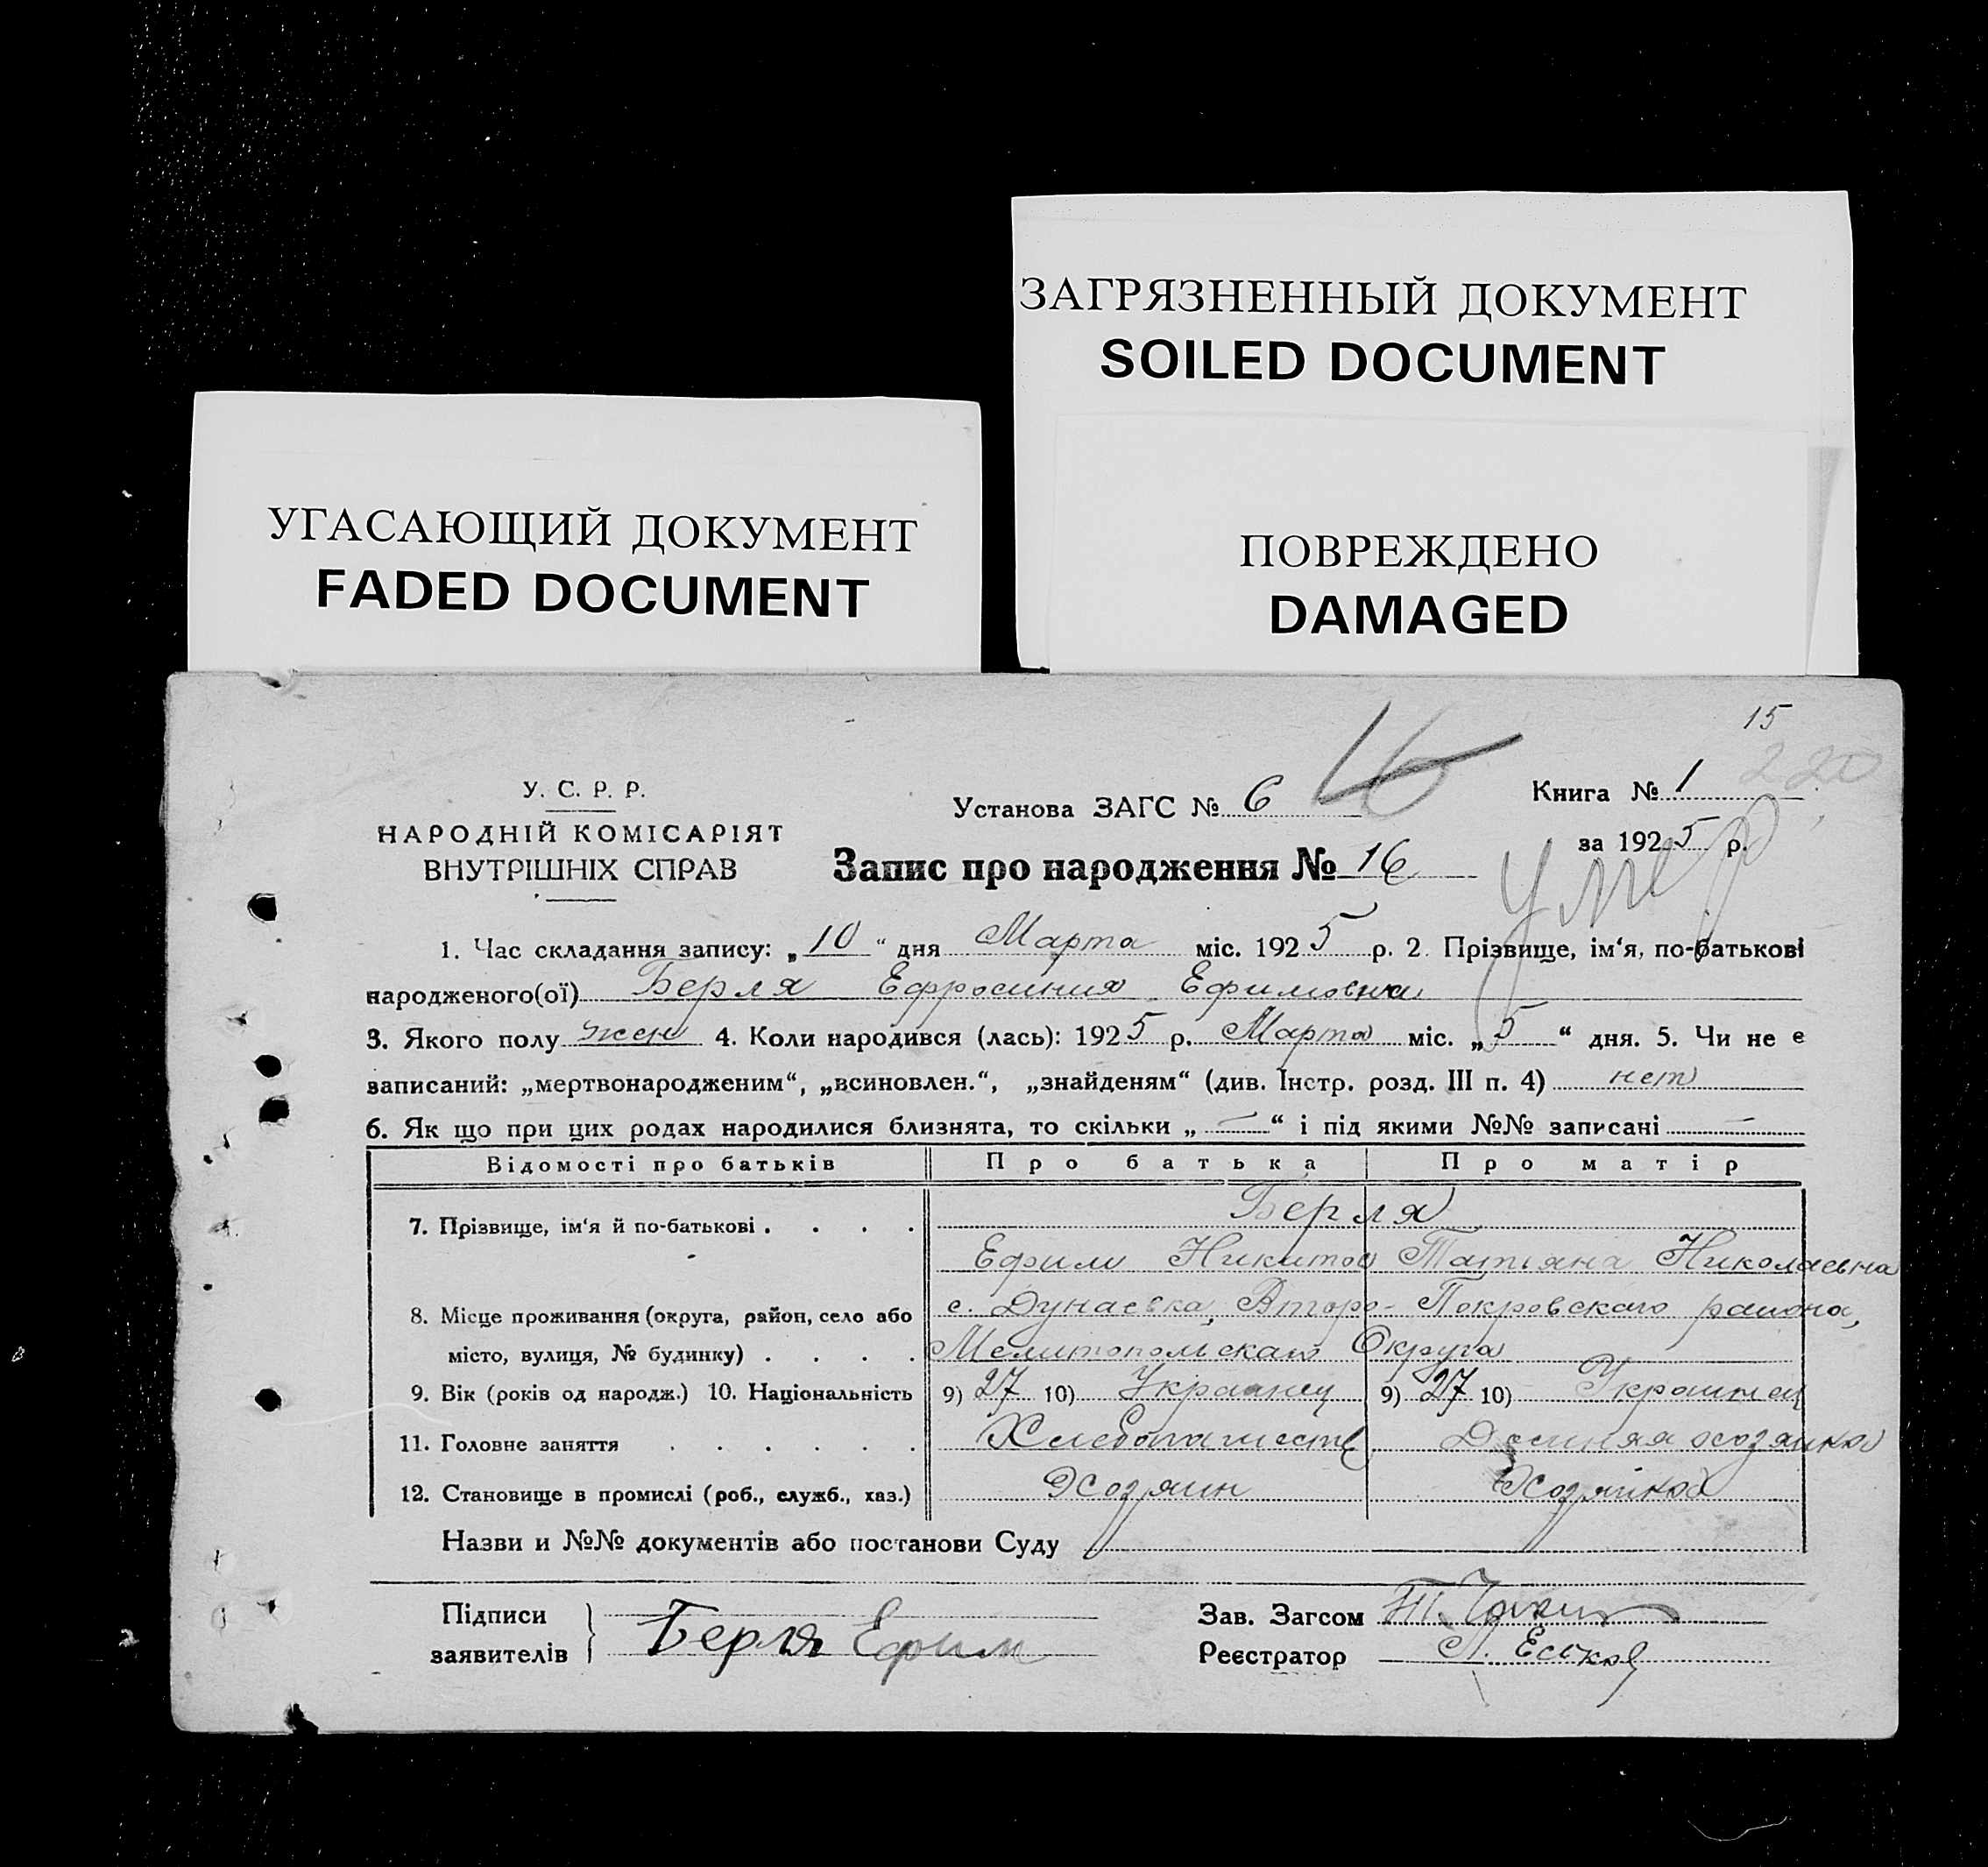 ЗАГРЯЗНЕННЫЙ ДОКУМЕНТ
SOILED DOCUMENT
УГАСАЮЩИЙ ДОКУМЕНТ
FADED DOCUMENT
ПОВРЕЖДЕНО
DAMAGED
15
220
16
У. С. Р. Р.
НАРОДНІЙ КОМІСАРІЯТ
ВНУТРІШНІХ СПРАВ
Установа ЗАГС № 6
Книга № 1
за 1925 р.
умер
Запис про народження № 16
1. Час складання запису: „10“ дня Марта міс. 1925 р. 2. Прізвище, ім‘я, по-батькові
народженого(ої) Берля Ефросиния Ефимовна
3. Якого полу жен 4. Коли народився (лась): 1925 р. Марта міс. „5“ дня. 5. Чи не є
записаний: „мертвонародженим“, „всиновлен.“, „знайденям“ (див. Інстр. розд. III п. 4) нет
6. Як що при цих родах народилися близнята, то скільки „—“ і під якими №№ записані —
Відомості про батьків Про батька Про матір
7. Прізвище, ім‘я й по-батькові . . . . Берля
Ефим Никитов Татьяна Николаевна
8. Місце проживання (округа, район, село або с. Дунаевка, Второ-Покровскаго района,
місто, вулиця, № будинку) . . . . Мелитопольскаго Округа
9. Вік (років од народж.) 10. Національність 9) 27 10) Украинец 9) 27 10)
11. Головне заняття . . . . . . Домашняя хозяйка
12. Становище в промислі (роб., служб., хаз.) Хозяин Хозяйка
Назви и №№ документів або постанови Суду
Підписи
заявителів } Берля Ефим
Зав. Загсом
Реєстратор